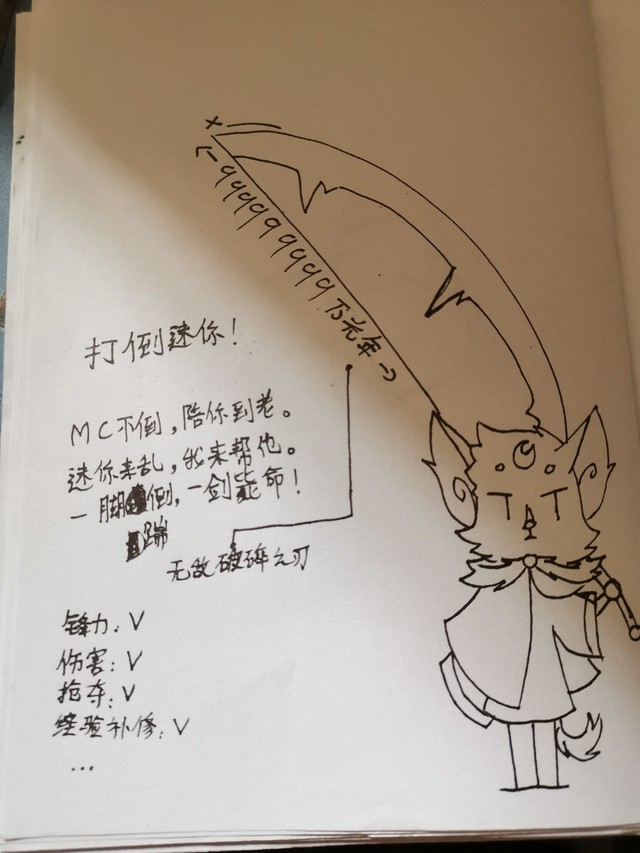 ←9999999999万光年→
打倒迷你！
MC不倒，陪你到老。
迷你来乱，我来帮他。
一脚倒，一剑毙命！
踹
无敌破碎之刃
锋力：V
伤害：V
抢夺：V
经验补修：V
...